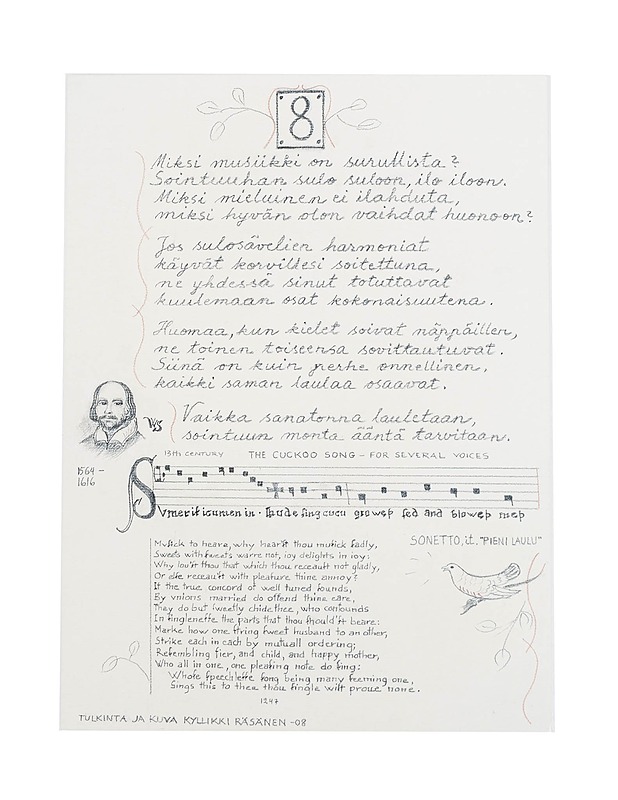 8
Miksi musiikki on surullista?
Sointuuhan sulo suloon, ilo iloon.
Miksi mieluinen ei ilahduta,
miksi hyvän olon vaihdat huonoon?
Jos sulosävelien harmoniat
käyvät korvillesi soitettuna,
ne yhdessä sinut totuttavat
kuulemaan osat kokonaisuutena.
Huomaa, kun kielet soivat näppäillen,
ne toinen toiseensa sovittautuvat.
Siinä on kuin perhe onnellinen,
kaikki saman laulaa osaavat.
Vaikka sanatonna lauletaan,
sointuun monta ääntä tarvitaan.
WS
1564 –
1616
13th CENTURY THE CUCKOO SONG – FOR SEVERAL VOICES
Sumer is icumen in · lhude sing cucu groweþ sed and bloweþ med
SONETTO, it. "PIENI LAULU"
Musick to heare, why hear'st thou musick sadly,
Sweets with sweets warre not, ioy delights in ioy:
Why lou'st thou that which thou receaust not gladly,
Or else receau'st with pleasure thine annoy?
If the true concord of well tuned sounds,
By vnions married do offend thine eare,
They do but sweetly chide thee, who confounds
In singlenesse the parts that thou should'st beare:
Marke how one string sweet husband to an other,
Strike each in each by mutuall ordering;
Resembling sier, and child, and happy mother,
Who all in one, one pleasing note do sing:
Whose speechlesse song being many seeming one,
Sings this to thee thou single wilt proue none.
1247
TULKINTA JA KUVA KYLLIKKI RÄSÄNEN -08